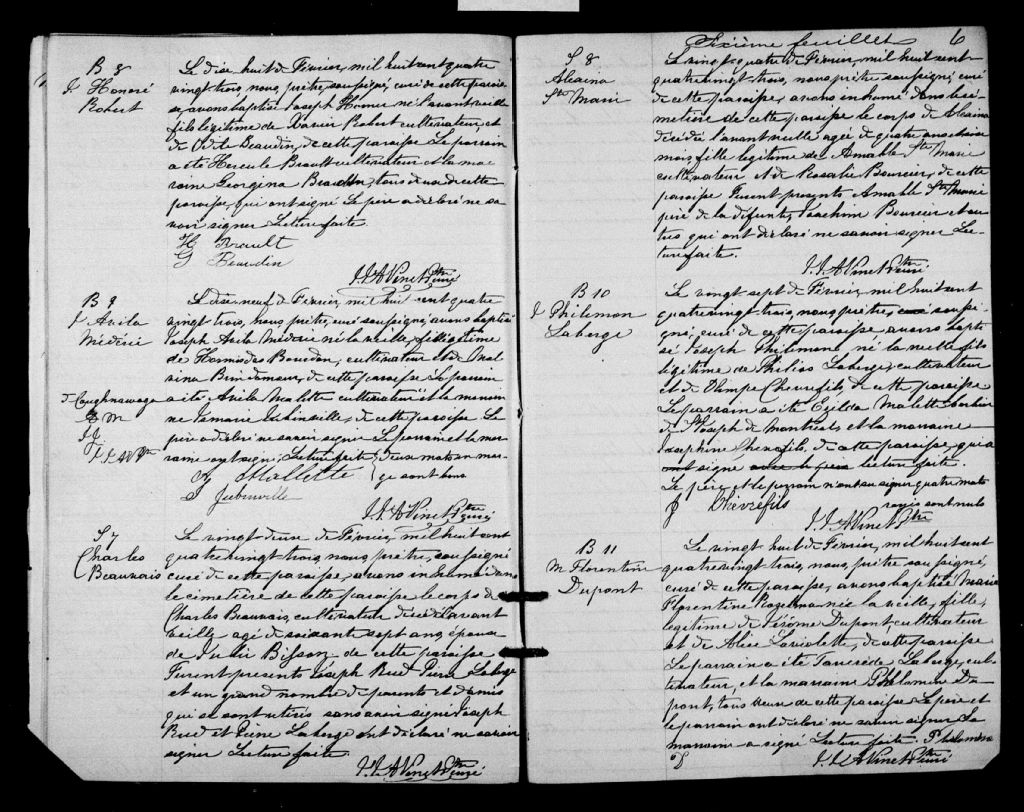 B 8
J Honoré
Robert
Le dix huit de Février, mil huit cent quatre
vingt trois, nous, prêtre, soussigné, curé de cette parois-
se, avons baptisé Joseph Honoré né l'avant veille
fils légitime de Xavier Robert cultivateur, et
de Odile Beaudin, de cette paroisse. Le parrain
a été Hercule Brault cultivateur et la mar
raine Georgina Beaudin, tous deux de cette
paroisse, qui ont signé. Le père a déclaré ne sa
voir signer. Lecture faite.
H Brault
G Beaudin
J. J. A Vinet Ptre curé
B 9
J Avila
Médéric
de Caughnawaga
Le dix neuf de Février, mil huit cent quatre
vingt trois, nous, prêtre, curé soussigné, avons baptisé
Joseph Avila Médéric né la veille, fils légitime
de Hormisdas cultivateur et de Mal
vina Brindamour, de cette paroisse. Le parrain
a été Avila Malette cultivateur et la marrai
ne de cette paroisse. Le
père a déclaré ne savoir signer. Le parrain et la mar
raine ont signé. Lecture faite deux mots en mar-
ge sont bons
Mallette
J. J. A Vinet Ptre curé
S 7
Charles
Beauvais
Le vingt deux de Février, mil huit cent
quatre vingt trois, nous, prêtre, soussigné
curé de cette paroisse, avons inhumé dans
le cimetière de cette paroisse le corps de
Charles Beauvais, cultivateur décédé l'avant
veille agé de soixante sept ans, époux
de Julie Bisson de cette paroisse.
Furent présents Joseph Pierre Laberge
et un grand nombre de parents et d'amis
qui se sont retirés sans avoir signé. Joseph
et Pierre Laberge ont déclaré ne savoir
signer Lecture faite
J. J. A Vinet Ptre curé
Sixième feuillet 6
S 8
Alexina
Ste Marie
Le vingt quatre de Février, mil huit cent
quatre vingt trois, nous, prêtre soussigné, curé
de cette paroisse, avons inhumé dans le ci-
metière de cette paroisse le corps de Alexina
décédée l'avant veille agée de quatre ans
mois, fille légitime de Amable Ste Marie
cultivateur et de Rosalie de cette
paroisse. Furent présents Amable Ste Marie
père de la défunte, Joachim et au-
tres qui ont déclaré ne savoir signer. Lec-
ture faite.
J. J. A Vinet Ptre curé
B 10
J Philémon
Laberge
Le vingt sept de Février, mil huit cent
quatre vingt trois, nous, prêtre, soussi-
gné, curé de cette paroisse avons bapti-
sé Joseph Philémon né la veille fils
légitime de Laberge, cultivateur
et de Olimpe Chevrefils, de cette paroisse
Le parrain a été Malette
de St Joseph de Montréal et la marraine
Joséphine Chevrefils, de cette paroisse, qui a
signé lecture faite.
Le père et le parrain n'ont su signer quatre mots
rayés sont nuls
J Chèvrefils
J. J. A Vinet Ptre
B 11
M Florentine
Dupont
Le vingt huit de Février, mil huit cent
quatre vingt trois, nous, prêtre soussigné,
curé de cette paroisse, avons baptisé Marie
Florentine née la veille, fille
légitime de Jérôme Dupont, cultivateur
et de Alice Laviolette, de cette paroisse
Le parrain a été Tancrède Laberge, cul-
tivateur, et la marraine Philomène Du
pont, tous deux de cette paroisse. Le père et
le parrain ont déclaré ne savoir signer. La
marraine a signé Lecture faite. Philomène
J. J. A Vinet Ptre curé